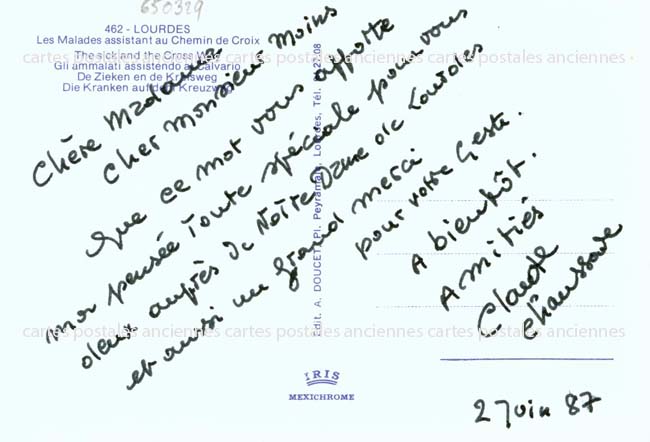 650329
462 - LOURDES
Les Malades assistant au Chemin de Croix
The sick and the Cross Way
Gli ammalati assistendo al Calvario
De Zieken en de Kruisweg
Die Kranken auf dem Kreuzweg
cartes postales anciennes cartes postales anciennes cartes postales anciennes
Chère Madame
Cher Monsieur Moins
Que ce mot vous apporte
mon pensée toute spéciale pour vous
deux auprès de Notre Dame de Lourdes
et aussi un grand merci
pour votre geste.
A bientôt.
Amitiés
Claude
Chaussave
Edit. A. DOUCET, Pl. Peyramale, Lourdes, Tél.
cartes postales anciennes cartes postales anciennes cartes postales anciennes
IRIS
MEXICHROME
2 Juin 87